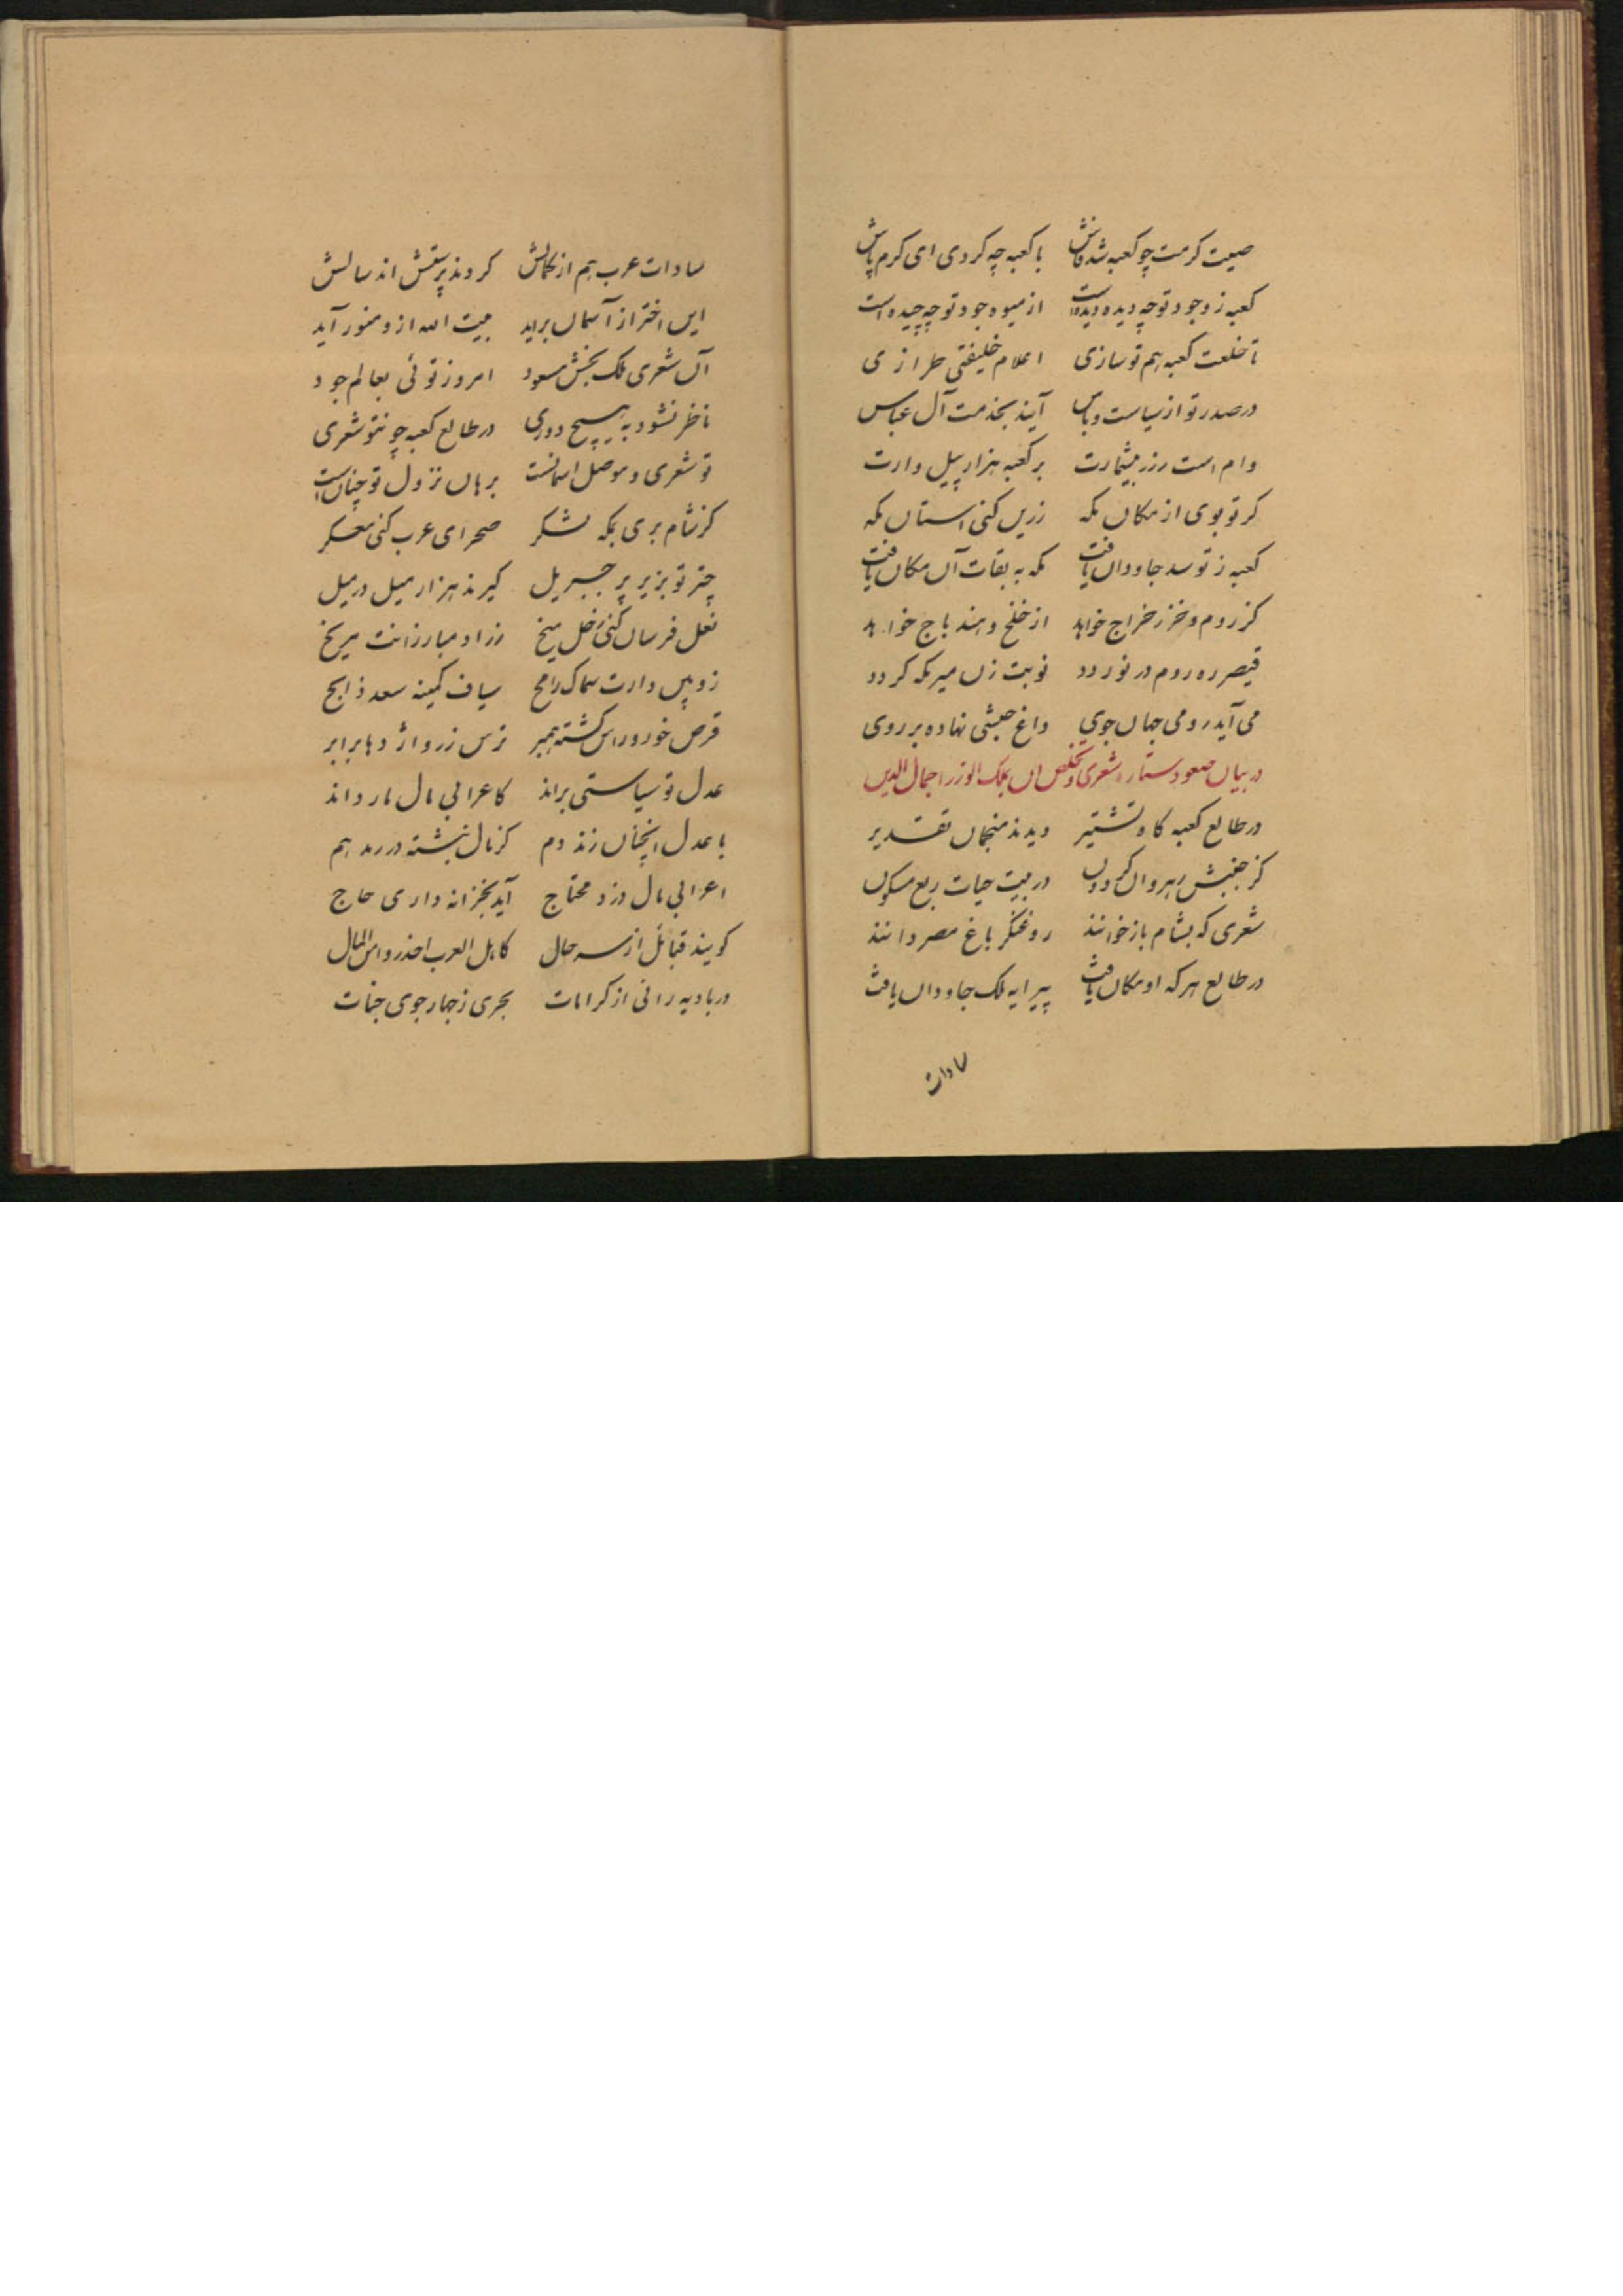 صیت کرمت چو کعبه شد فاش با کعبه چه کردی ای کرم پاش
کعبه ز وجود تو چه دیده دیده است از میوه جود تو چه چیده است
تا خلعت کعبه هم تو سازی اعلام خلیفتی طرازی
در صدر تو از سیاست و باس آیند بخدمت آل عباس
وام است زر بیشمارت بر کعبه هزار پیل وارت
کر تو بوی از مکان مکه زرین کنی آستان مکه
کعبه ز تو سد جاودان یافت مکه به بقات آن مکان یافت
کز روم و خزر خراج خواهد از خلخ و هند باج خواهد
قیصر ره روم در نوردد نوبت زن میر مکه کردد
می آید رومی جهان جوی داغ حبشی نهاده بر روی
در بیان صعود ستاره شعری و تخلص آن بملک الوزرا جمال الدین
در طالع کعبه کاه تشتیر دیدند منجمان تقدیر
کز جنبش رهروان کردون در بیت حیات ربع مسکون
شعری که بشام باز خوانند روغنکر باغ مصر دانند
در طالع هر که او مکان یافت پیرایه ملک جاودان یافت
سادات
سادات عرب هم از کمالش کردند پرستش اند سالش
این اختر از آسمان برآید بیت الله ازو منور آید
آن شعری ملک بخش مسعود امروز توئی بعالم جود
ناظر نشود به هیچ دوری در طالع کعبه چو تو شعری
تو شعری و موصل آسمانست برهان نزول تو چنانست
کز شام بری بمکه لشکر صحرای عرب کنی معسکر
چتر تو بزیر پر جبریل کیرند هزار میل در میل
نعل فرسان کنی ز خل میخ زراد مبارزانت مریخ
زوبین دارت سماک رامح سیاف کمینه سعد ذابح
قرص خور و راس کشته همبر ترس زر و اژدها برابر
عدل تو سیاستی براند کاعرابی مال مار داند
با عدل آنچنان زند دم کز مال نبشته در رمد هم
اعرابی مال دزد محتاج آید بخزانه داری حاج
کویند قبائل از سر حال کاهل العرب احذروا من المال
در بادیه رانی از کرامات بحری ز چهار جوی جنات